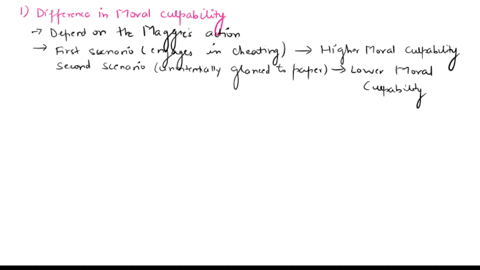 1) Difference in Moral culpability
→ Depend on the Maggie's action
→ First scenario (engages in cheating) → Higher Moral culpability
Second scenario (unintentially glanced to paper) → Lower Moral
Culpability